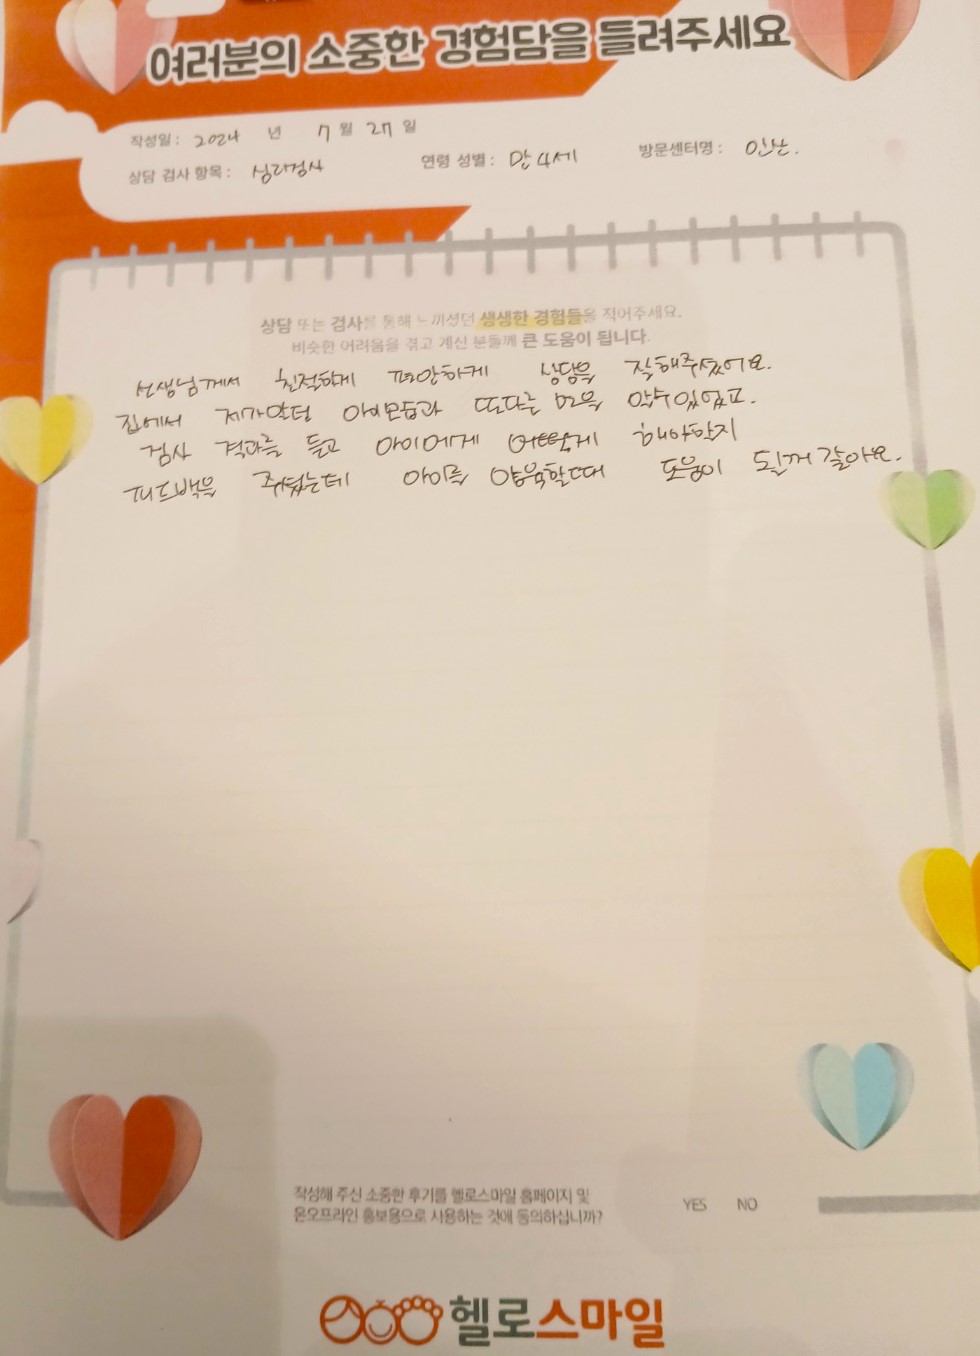 여러분의 소중한 경험담을 들려주세요
작성일 : 2024 년 7 월 27 일
상담 검사 항목 : 심리검사 연령 성별 : 만 4세 방문센터명 : 안산.
상담 또는 검사를 통해 느끼셨던 생생한 경험들을 적어주세요.
비슷한 어려움을 겪고 계신 분들께 큰 도움이 됩니다.
선생님께서 친절하게 편안하게 상담을 잘해주셨어요.
집에서 제가알던 아이모습과 또다른 면을 알수있었고.
검사 결과를 듣고 아이에게 어떻게 해야할지
피드백을 주셨는데 아이를 양육할때 도움이 될꺼 같아요.
작성해 주신 소중한 후기를 헬로스마일 홈페이지 및
온오프라인 홍보용으로 사용하는 것에 동의하십니까? YES NO
헬로스마일